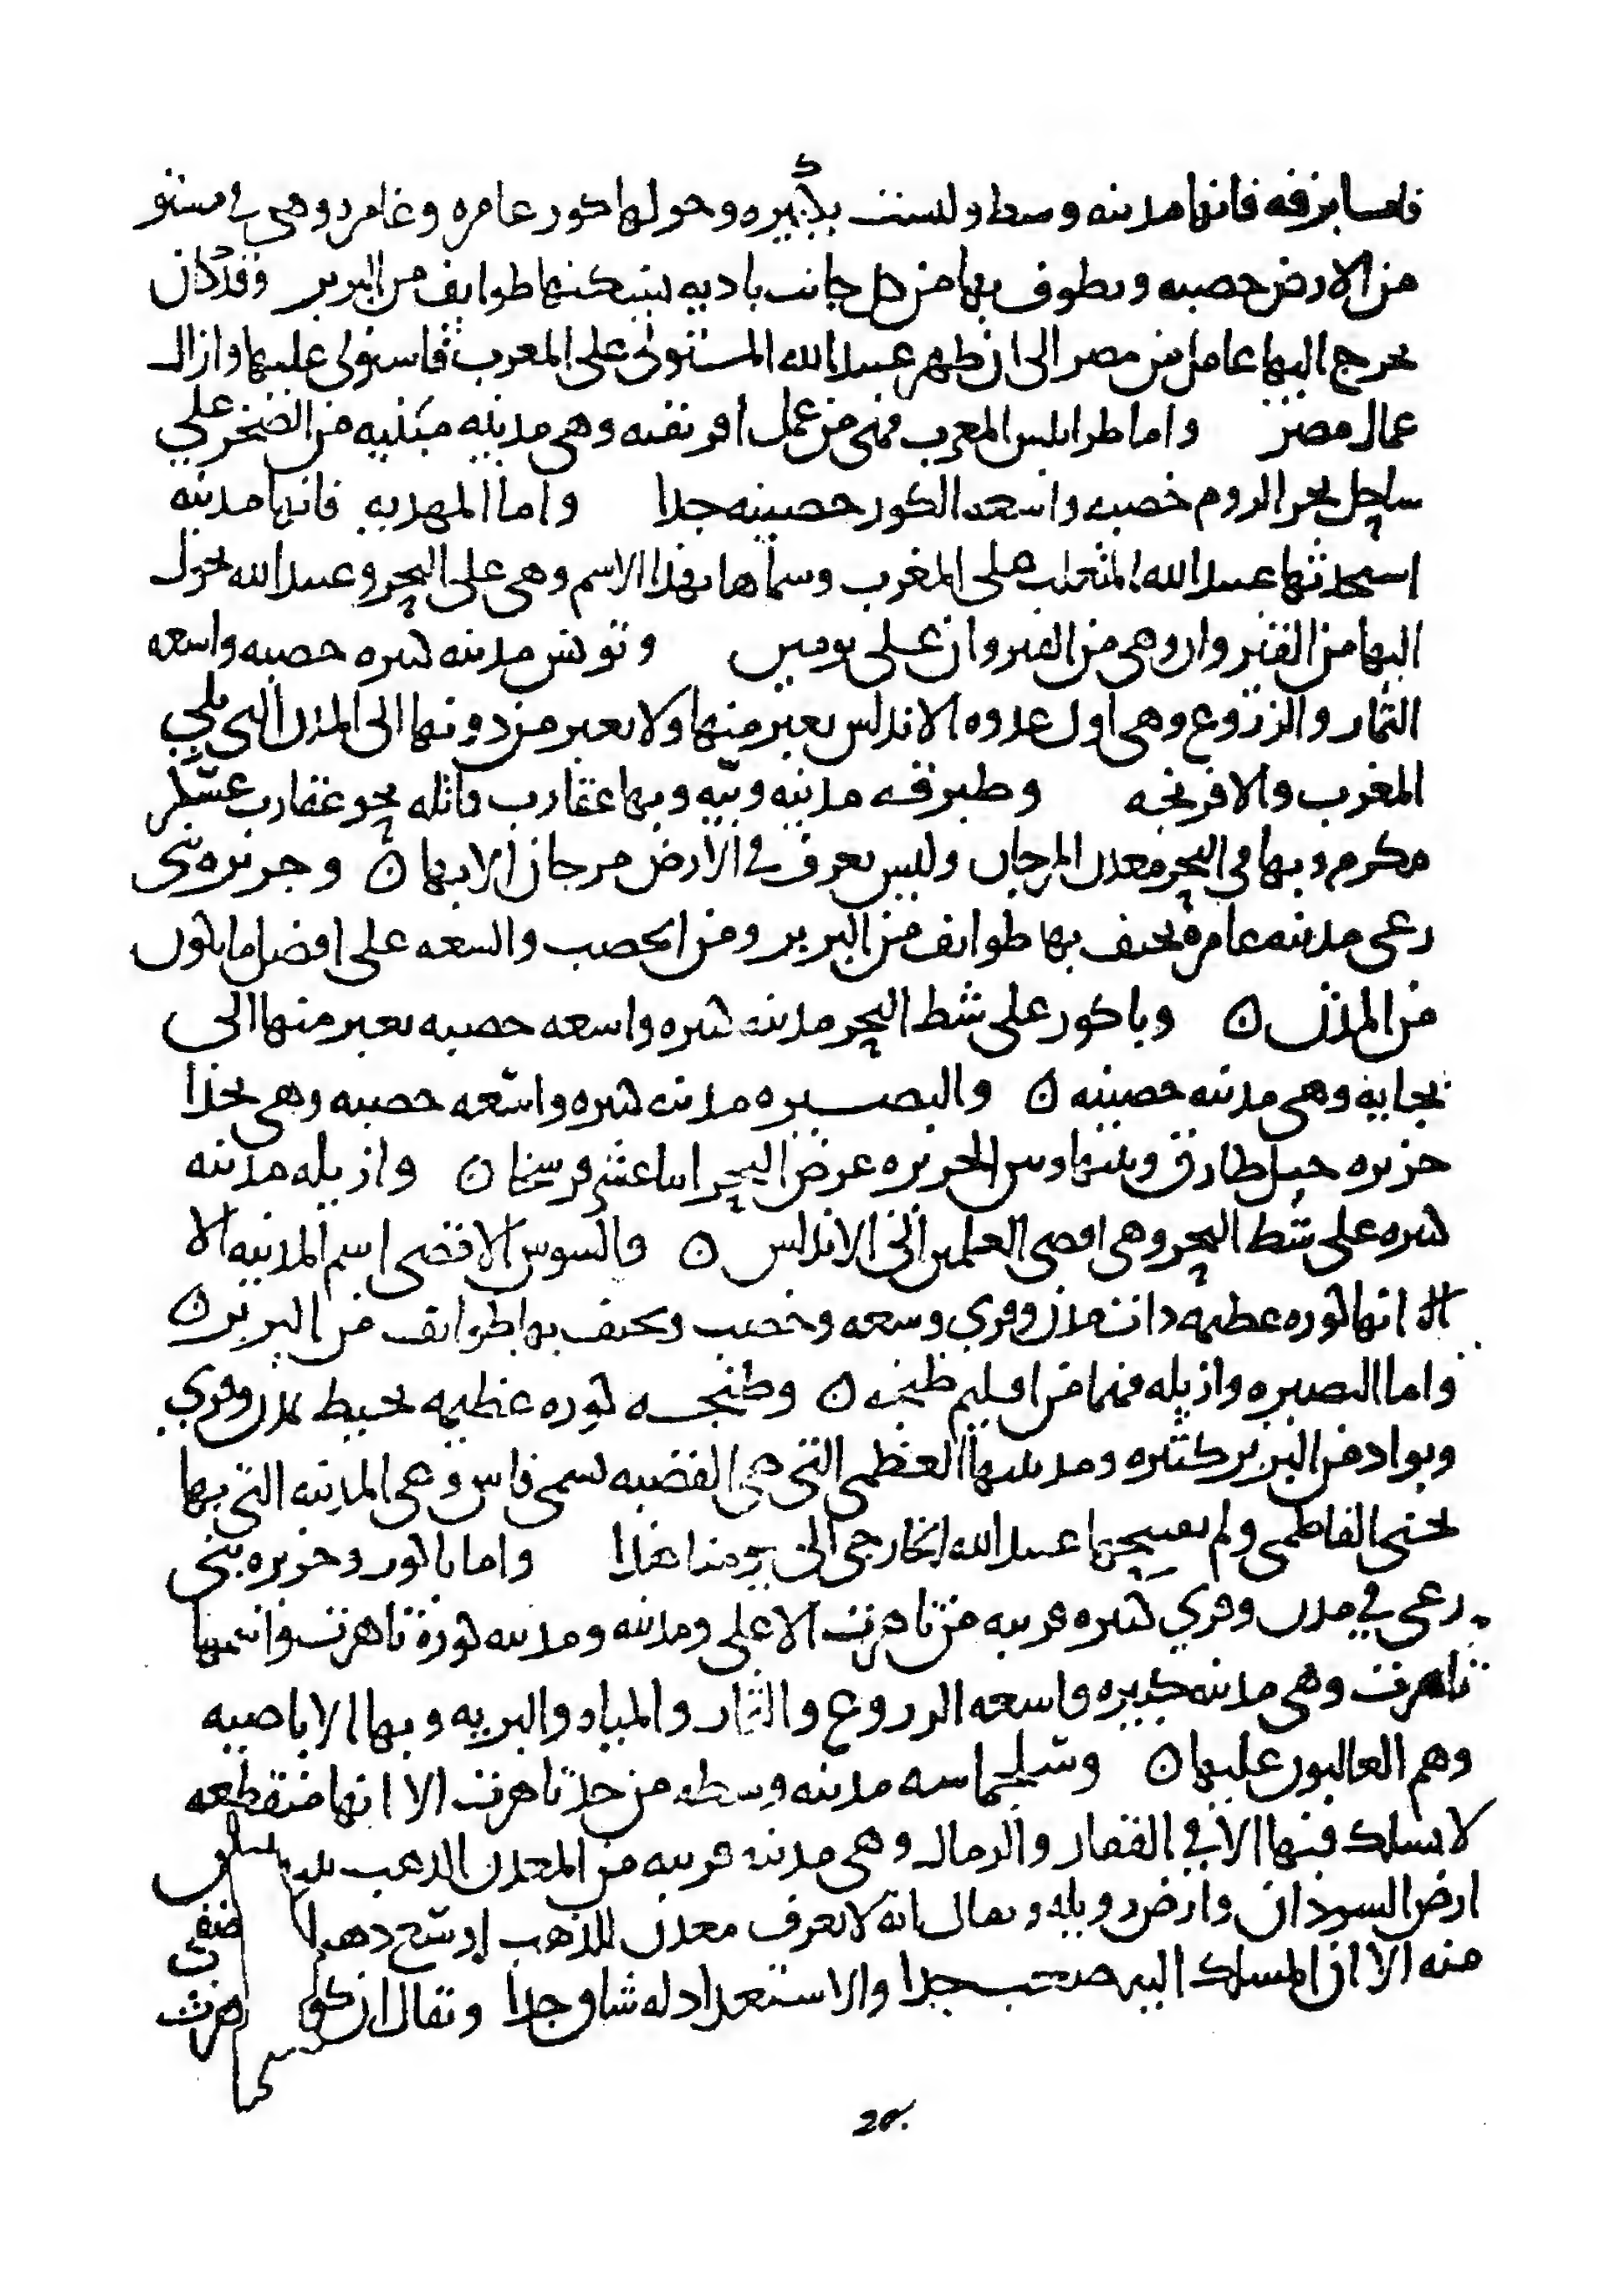 فاما برقه فانها مدينه وسط وليست بكبيره وحولها كور عامره وغامره وهي في مستو
من الارض خصبه ويطوف بها من كل جانب باديه يسكنها طوايف من البربر وقد كان
يخرج اليها عامل من مصر الى ان ظهر عبيد الله المستولى على المغرب فاستولى عليها وازال
عمال مصر واما طرابلس المغرب فهى من عمل افريقيه وهى مدينه مبنيه من الصخر على
ساحل بحر الروم خصبه واسعه الكور حصينه جدا واما المهديه فانها مدينه
استحدثها عبيد الله المتغلب على المغرب وسماها بهذا الاسم وهى على البحر وعبيد الله تحول
اليها من القيروان وهى من القيروان على يومين وتونس مدينه كبيره خصبه واسعه
الثمار والزروع وهى اول عدوه الاندلس يعبر منها ولا يعبر من دونها الى المدن التى تلى
المغرب والافرنجه وطبرقه مدينه وبيه وبها عقارب قاتله نحو عقارب عسكر
مكرم وبها فى البحر معدن المرجان وليس يعرف فى الارض مرجان الا بها ن وجزيره بنى
رعى مدينه عامره يحتف بها طوايف من البربر ومن الخصب والسعه على افضل ما يكون
من المدن ن وباكور على شط البحر مدينه كبيره واسعه خصبه يعبر منها الى
بجايه وهى مدينه حصينه ن والبصيره مدينه كبيره واسعه خصبه وهى بحذا
جزيره جبل طارق وبينها وبين الجزيره عرض البحر اثنا عشر فرسخا ن وازيله مدينه
كبيره على شط البحر وهى اقصى العملين الى الاندلس ن والسوس الاقصى اسم المدينه الا
الا انها كوره عظيمه ذات مدن وقرى وسعه وخصب ويحتف بها طوايف من البربر ن
واما البصيره وازيله فهما من اقليم طنجه ن وطنجه كوره عظيمه تحيط بمدن وقرى
وبواد من البربر كثيره ومدينتها العظمى التى هى القصبه تسمى فاس وهى المدينه التى بها
يحيى الفاطمى ولم يفتحها عبيد الله الخارجى الى يومنا هذا واما باكور وجزيره بنى
رعى فى مدن وقرى كثيره قريبه من تاهرت الاعلى ومدينه ومدينه كوره تاهرت واسمها
تاهرت وهى مدينه كبيره واسعه الزروع والثمار والمياه والبريه وبها الاباضيه
وهم الغالبون عليها ن وسلجماسه مدينه وسطه من حد تاهرت الا انها منقطعه
لا يسلك فيها الا فى القفار والرمال وهى مدينه قريبه من المعدن الذهب بينها وبين
ارض السودان وارض زويله ويقال انه لا يعرف معدن للذهب اوسع ذهبا اصفى
منه الا ان المسلك اليه صعب جدا والاستعداد له شاق جدا ويقال ان كور تاهرت